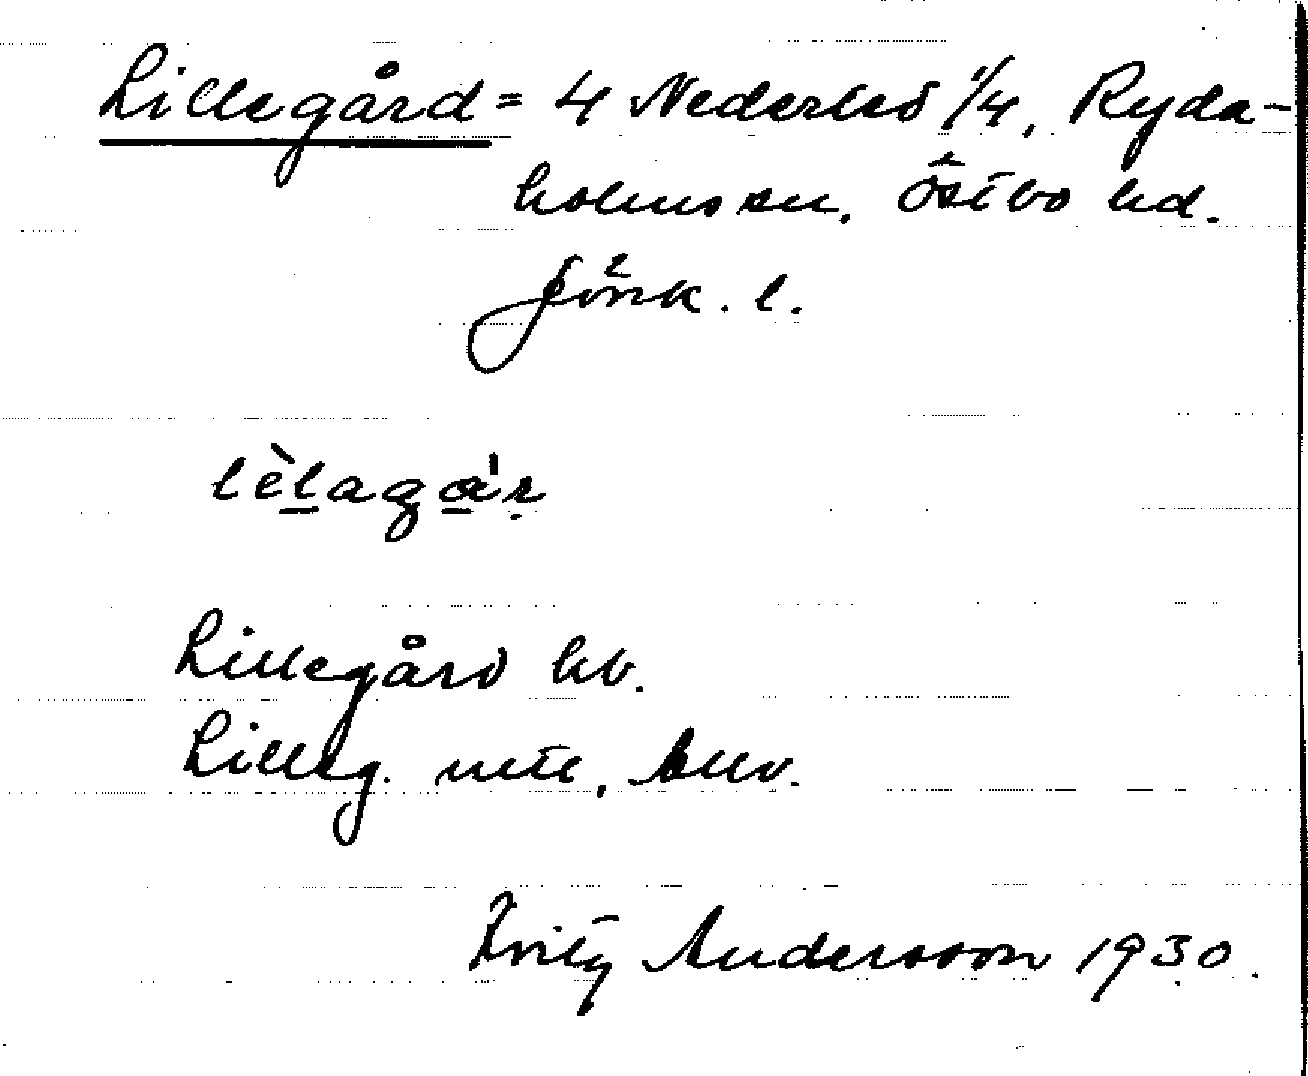 Lillegård = 4 Nederled 1/4, Ryda-
holms sn, Östbo hd.
Jönk. l.
lèlagá'r
Lillegård kb.
Lilleg. mtl,
Fritz Andersson 1930.